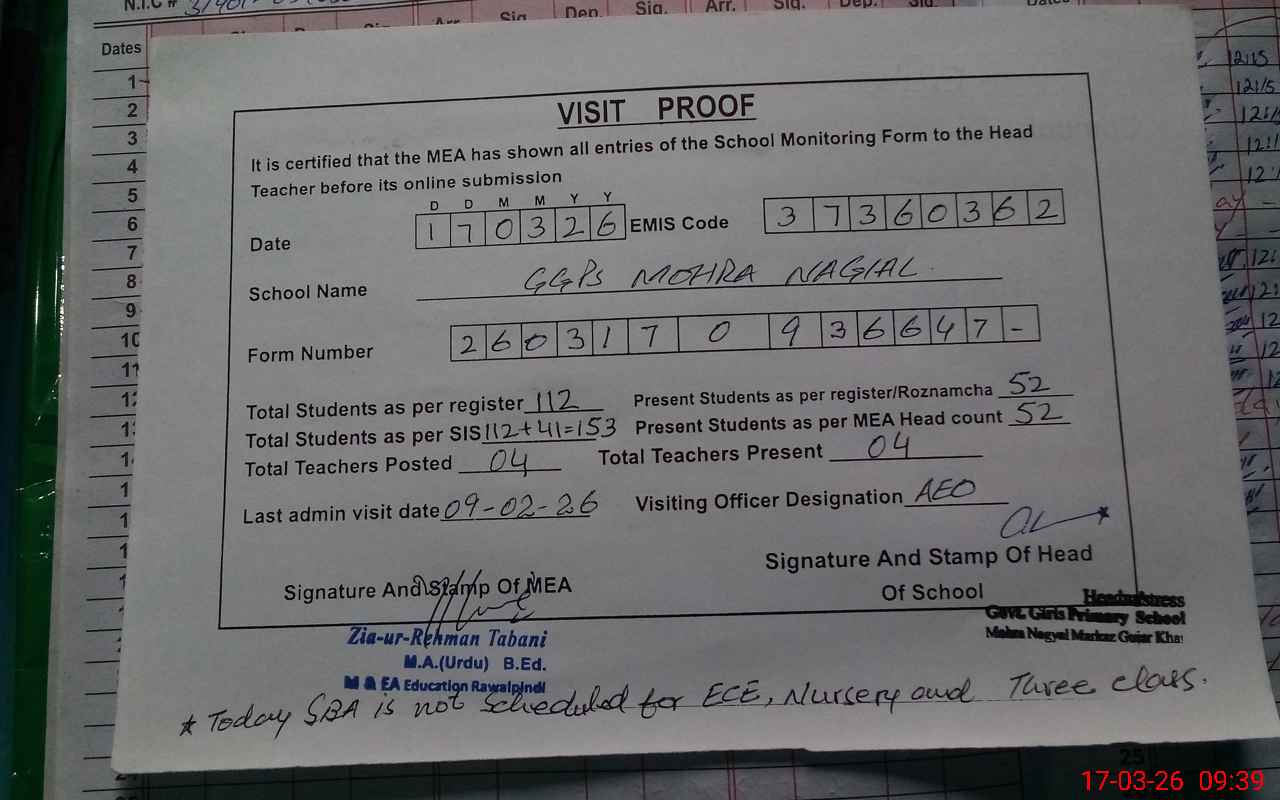 N.I.C #
Dates Arr. Sig. Dep. Sig. Arr. Sig. Dep. Sig.
1
2
3
4
5
6
7
8
9
10
11
VISIT PROOF
It is certified that the MEA has shown all entries of the School Monitoring Form to the Head
Teacher before its online submission
D D M M Y Y
Date 1 7 0 3 2 6 EMIS Code 3 7 3 6 0 3 6 2
School Name GGPS MOHRA NAGIAL
Form Number 2 6 0 3 1 7 0 9 3 6 6 4 7 -
Total Students as per register 112 Present Students as per register/Roznamcha 52
Total Students as per SIS 112+41=153 Present Students as per MEA Head count 52
Total Teachers Posted 04 Total Teachers Present 04
Last admin visit date 09-02-26 Visiting Officer Designation AEO
Signature And Stamp Of MEA Signature And Stamp Of Head
Of School
Zia-ur-Rehman Tabani
M.A.(Urdu) B.Ed.
M & EA Education Rawalpindi
Headmistress
Govt. Girls Primary School
Mohra Nagyal Markaz Gujar Kha
* Today SBA is not scheduled for ECE, Nursery and Three class.
25
17-03-26 09:39